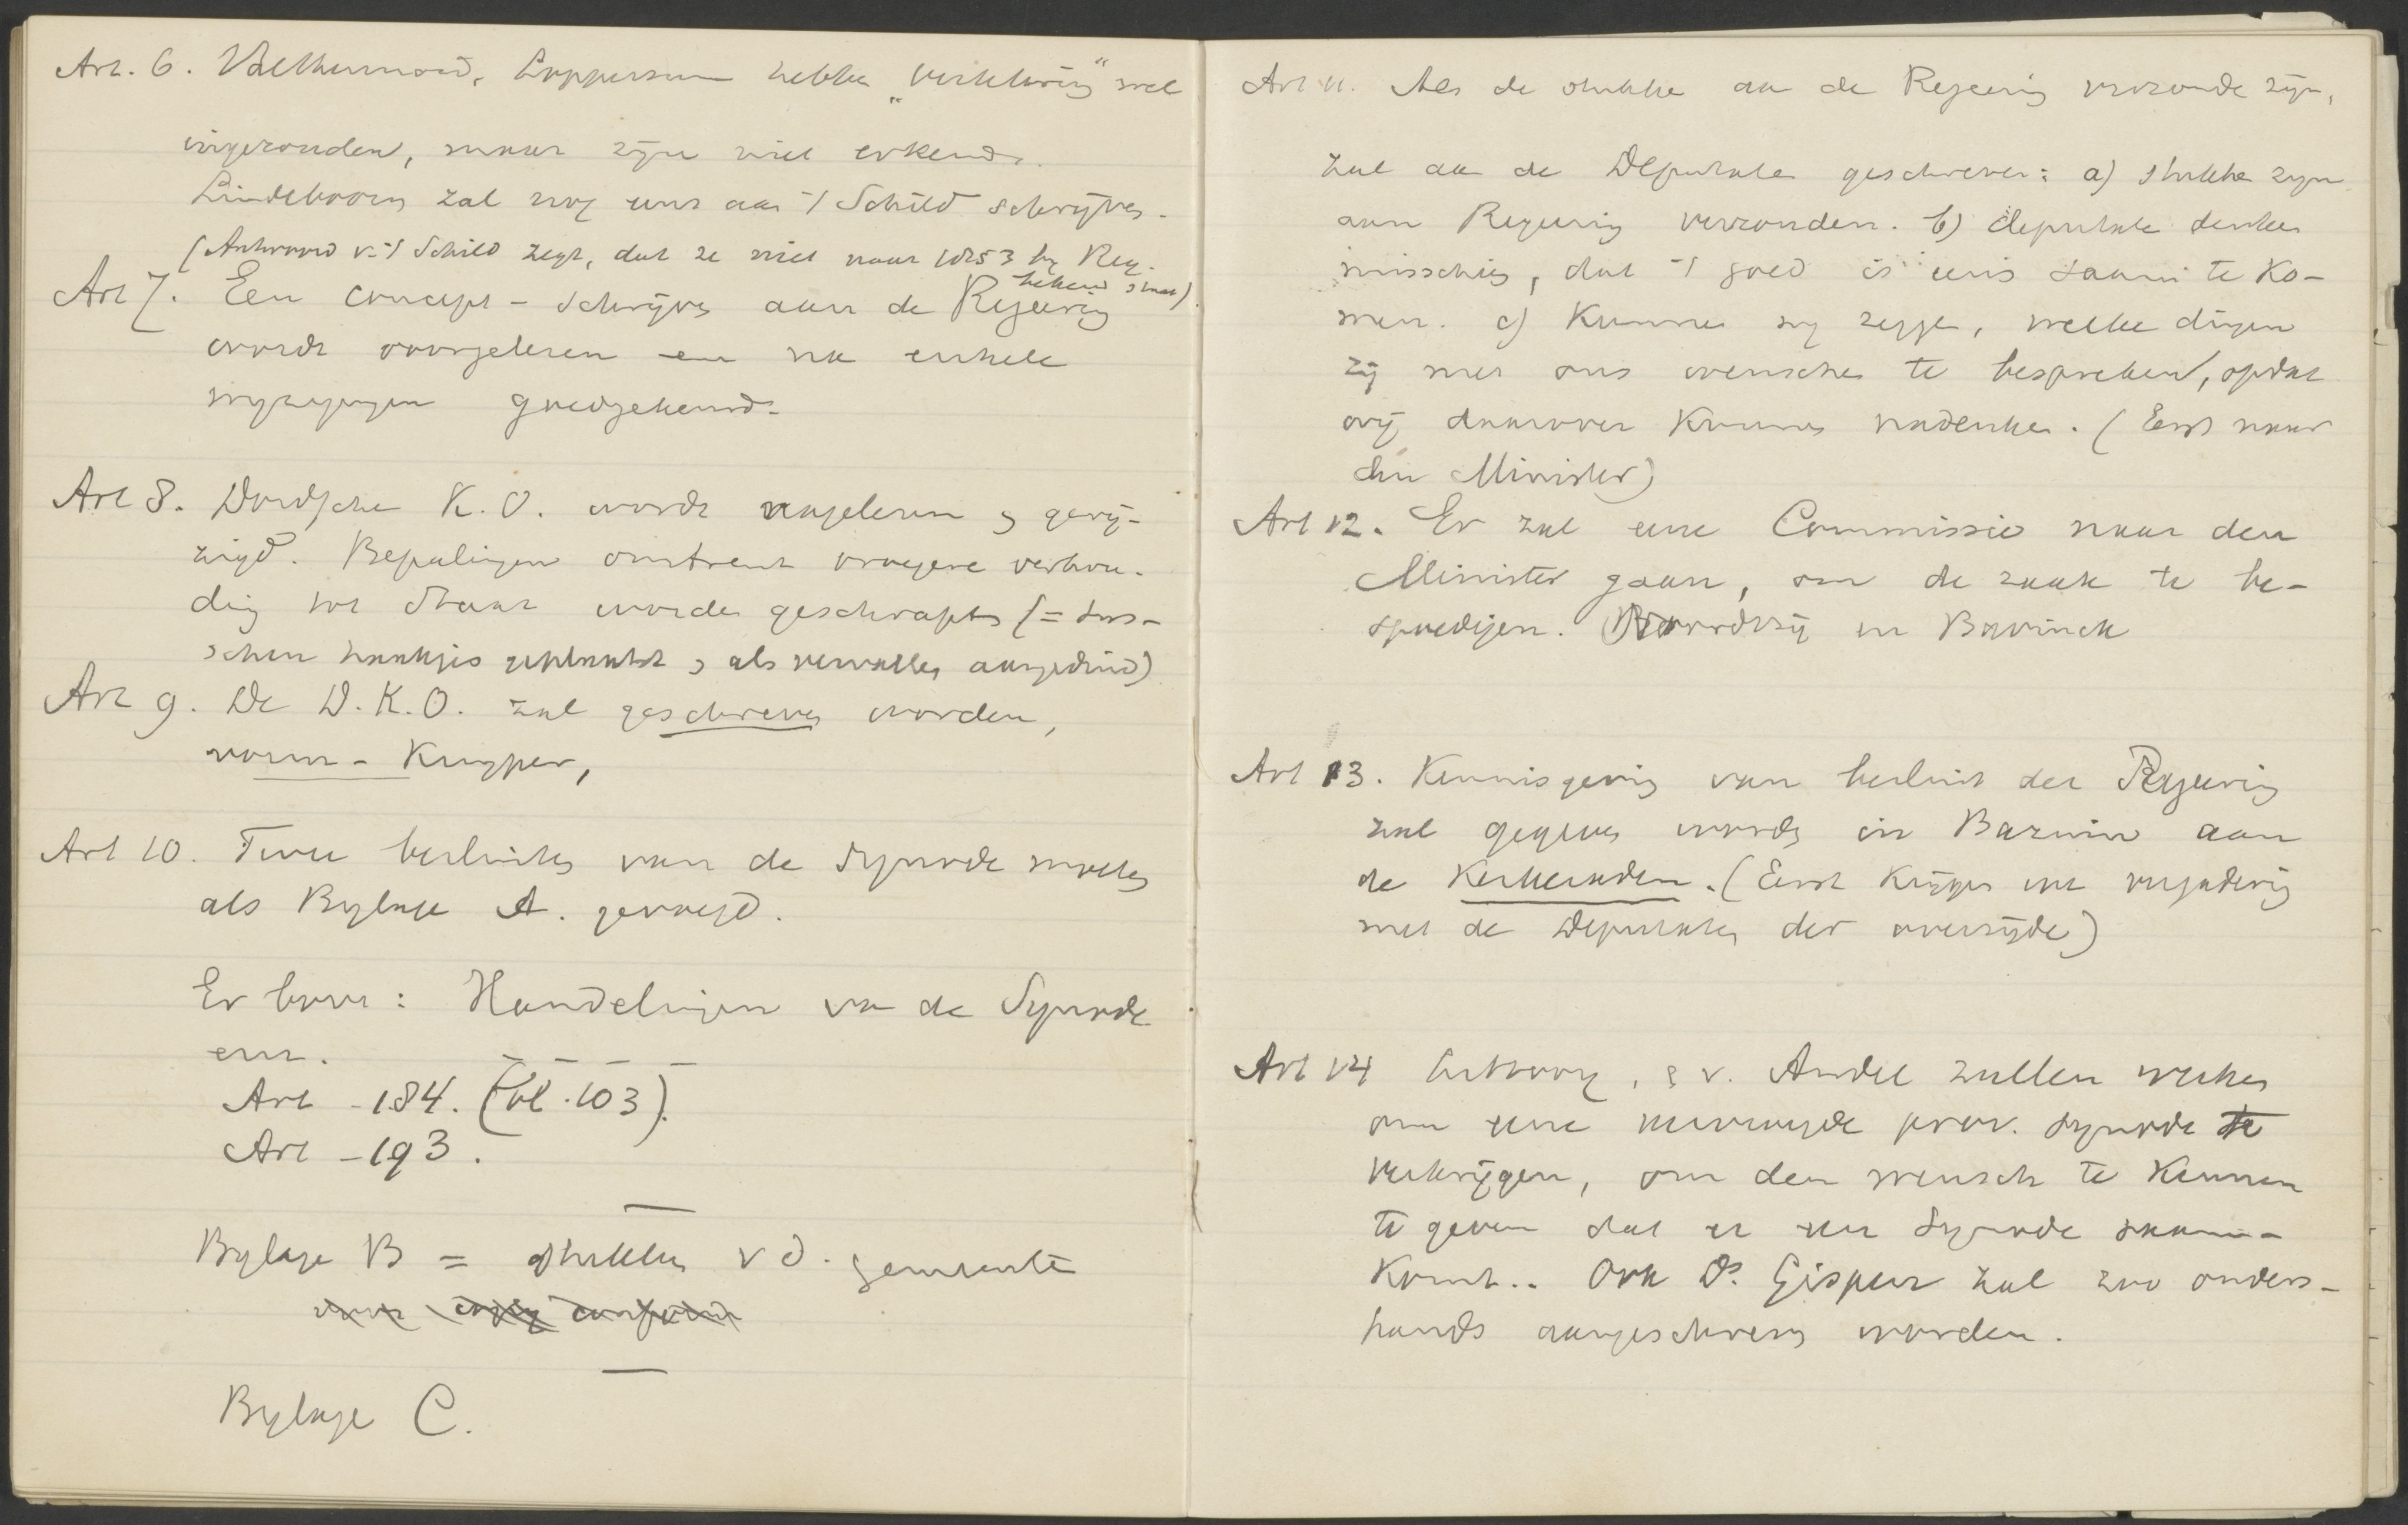 Art. 6. Valthermond, Loppersum hebben „verklaring" wel
ingezonden, maar zijn niet erkend.
Lindeboom zal nog eens aan 't Schild schrijven.
(Antwoord v. 't Schild zegt, dat ze niet naar 1853 by Reg.
bekend staat).
Art 7. Een concept-schrijven aan de Regeering
wordt voorgelezen en na enkele
wyzigingen goedgekeurd.
Art 8. Dordsche K.O. wordt nagelezen & gewij-
zigd. Bepalingen omtrent vroegere verhou-
ding tot Staat worden geschrapt (= tus-
schen haakjes geplaatst & als vervallen aangeduid)
Art 9. De D.K.O. zal geschreven worden,
vorm - Kuyper,
Art 10. Twee besluiten van de Synode moeten
als Bylage A. gevoegd.
Er boven: Handelingen van de Synode
enz.
Art - 184. (bl. 103).
Art - 193.
Bylage B = stukken v d. gemeente
Bylage C.
Art 11. Als de stukken aan de Regeering verzonden zijn,
zal aan de Deputaten geschreven: a) stukken zyn
aan Regeering verzonden. b) deputaten denken
misschien, dat 't goed is eens saam te ko-
men. c) Kunnen wy zeggen, welke dingen
zij met ons wenschen te bespreken, opdat
wij daarover kunnen nadenken. (Eerst naar
den Minister)
Art 12. Er zal eene Commissie naar den
Minister gaan, om de zaak te be-
spoedigen. Noordtzij en Bavinck
Art 13. Kennisgeving van besluit der Regeering
zal gegeven worden in Bazuin aan
de Kerkeraden. (Eerst krijgen we vergadering
met de Deputaten der overzijde)
Art 14 & v. Andel zullen werken
om eene vervroegde prov. Synode te
verkrijgen, om den wensch te kennen
te geven dat er een Synode saam-
komt.. Ook Ds. Gispen zal zoo onders-
hands aangeschreven worden.